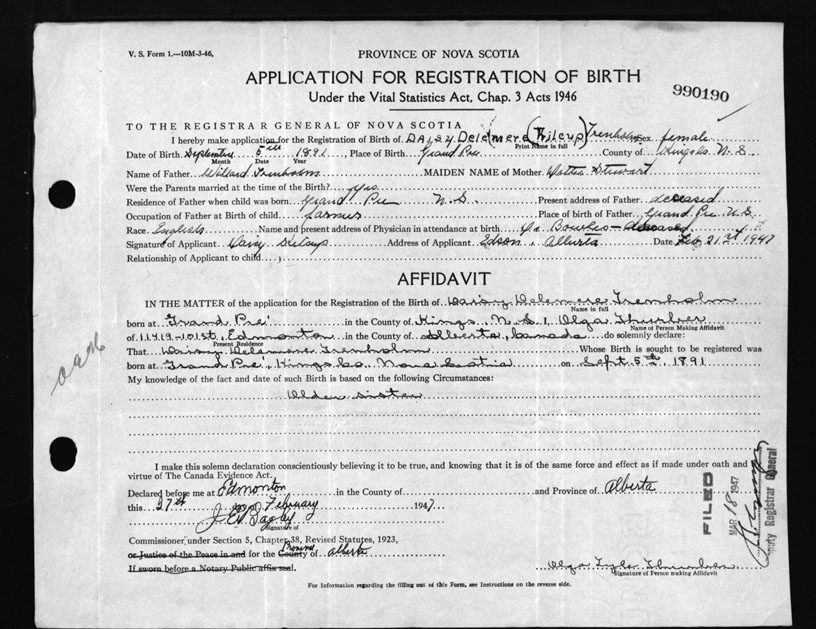 V. S. Form 1.—10M-3-46,
PROVINCE OF NOVA SCOTIA
APPLICATION FOR REGISTRATION OF BIRTH
Under the Vital Statistics Act, Chap. 3 Acts 1946
990190
TO THE REGISTRAR GENERAL OF NOVA SCOTIA
I hereby make application for the Registration of Birth of DAISY Delemere (Kilcup) Trenholm sex female
Print Name in full
Date of Birth September 5th 1891 Place of Birth Grand Pre County of Kings Co. N. S.
Month Date Year
Name of Father Willard Trenholm MAIDEN NAME of Mother Stewart
Were the Parents married at the time of the Birth? Yes
Residence of Father when child was born Grand Pre N.S. Present address of Father deceased
Occupation of Father at Birth of child farmer Place of birth of Father Grand Pre N.S.
Race English Name and present address of Physician in attendance at birth Dr Bowles - deceased
Signature of Applicant Daisy Kilcup Address of Applicant Edson, Alberta Date Feb 21st 1947
Relationship of Applicant to child
AFFIDAVIT
IN THE MATTER of the application for the Registration of Birth of Daisy Delemere Trenholm
Name in full
born at Grand Pre' in the County of Kings N.S. I, Olga Thurber
Name of Person Making Affidavit
of 11419-101 st, Edmonton in the County of Alberta, Canada do solemnly declare:
Present Residence
That Daisy Delemere Trenholm Whose Birth is sought to be registered was
born at Grand Pre', Kings Co, Nova Scotia on Sept 5th 1891
My knowledge of the fact and date of such Birth is based on the following Circumstances:
Older sister
I make this solemn declaration conscientiously believing it to be true, and knowing that it is of the same force and effect as if made under oath and
virtue of The Canada Evidence Act.
Declared before me at Edmonton in the County of and Province of Alberta
this 27th of February 1947
J. E. Bagley
Signature of
Commissioner under Section 5, Chapter 38, Revised Statutes, 1923,
or Justice of the Peace in and for the County of Alberta
If sworn before a Notary Public affix seal.
Olga Thurber
Signature of Person making Affidavit
For Information regarding the filling out of this Form, see Instructions on the reverse side.
FILED
MAR 18 1947
Deputy Registrar General